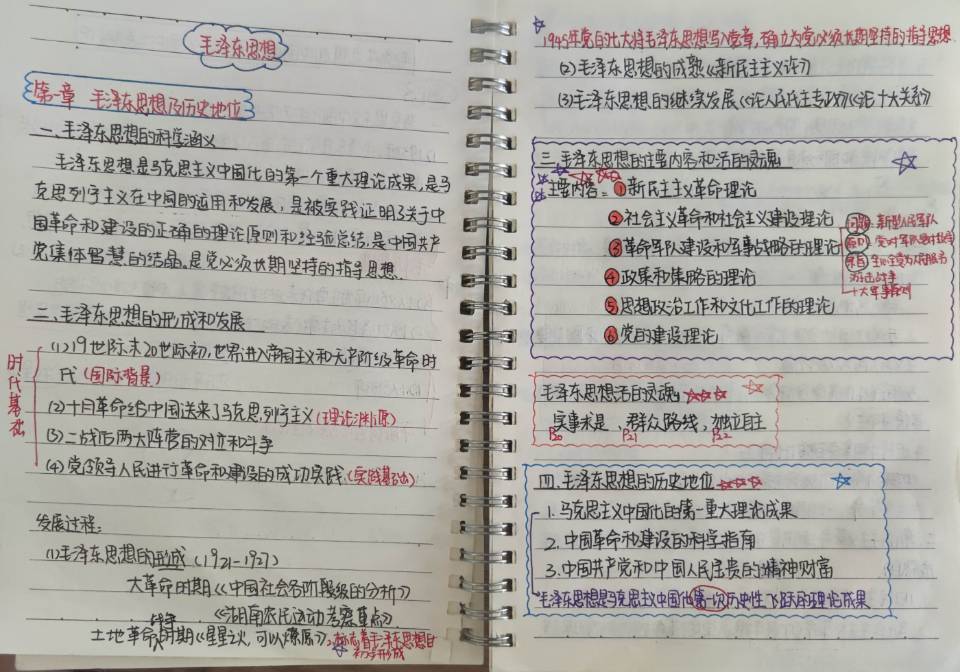 毛泽东思想
第一章 毛泽东思想及历史地位
一、毛泽东思想的科学涵义
毛泽东思想是马克思主义中国化的第一个重大理论成果,是马
克思列宁主义在中国的运用和发展,是被实践证明了关于中
国革命和建设的正确的理论原则和经验总结,是中国共产
党集体智慧的结晶。是党必须长期坚持的指导思想.
二、毛泽东思想的形成和发展
时代基础
(1)19世际末20世际初,世界进入帝国主义和无产阶级革命时
代(国际背景)
(2)十月革命给中国送来了马克思列宁主义(理论渊源)
(3)二战后两大阵营的对立和斗争
(4)党领导人民进行革命和建设的成功实践.(实践基础)
发展过程:
(1)毛泽东思想的形成(1921-1927)
大革命时期《中国社会各阶段级的分析》
《湖南农民运动考察
土地革命战争时期《星星之火,可以燎原》,标志着毛泽东思想日
初步形成
1945年党的七大将毛泽东思想写入党章,确立为党必须长期坚持的指导思想.
(2)毛泽东思想的成熟《新民主主义论》
(3)毛泽东思想的继续发展《论人民民主专政》《论十大关系》
三、毛泽东思想的主要内容和活的灵魂
主要内容: ①新民主主义革命理论
②社会主义革命和社会主义建设理论
③革命军队建设和军事战略的理论
问题:新型人民军队
原则:党对军队绝对领导
宗旨:全心全意为人民服务
游击战争
十大军事原则
④政策和策略的理论
⑤思想政治工作和文化工作的理论
⑥党的建设理论
毛泽东思想活的灵魂
实事求是、群众路线,独立自主
P20 P21 P22
四.毛泽东思想的历史地位
1.马克思主义中国化的第一重大理论成果
2.中国革命和建设的科学指南
3.中国共产党和中国人民宝贵的精神财富
毛泽东思想是马克思主义中国化第一次历史性飞跃的理论成果